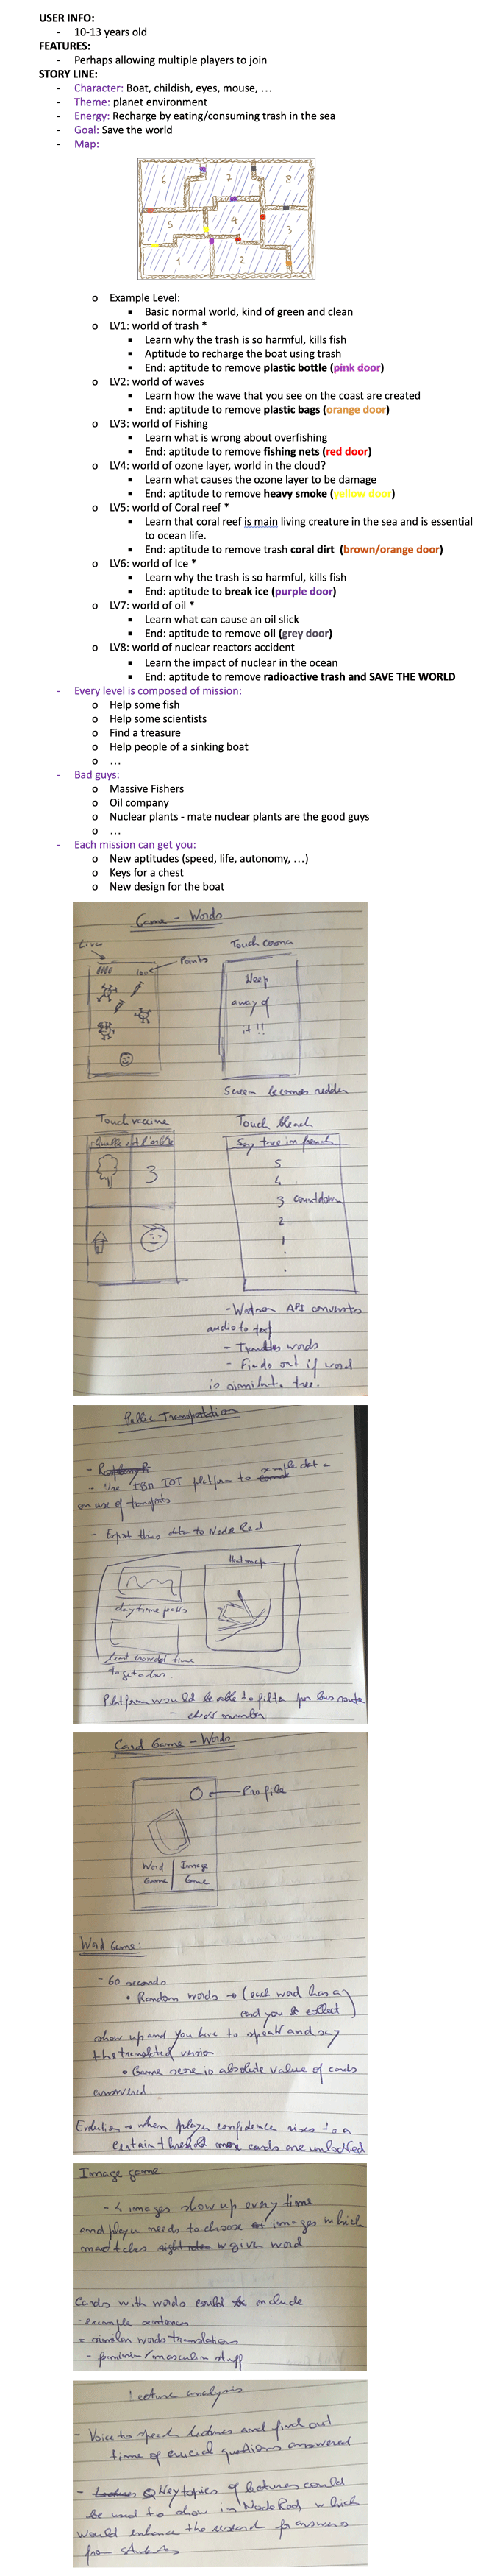 USER INFO:
- 10-13 years old
FEATURES:
- Perhaps allowing multiple players to join
STORY LINE:
- Character: Boat, childish, eyes, mouse, …
- Theme: planet environment
- Energy: Recharge by eating/consuming trash in the sea
- Goal: Save the world
- Map:
6 7 8
5 4 3
1 2
o Example Level:
▪ Basic normal world, kind of green and clean
o LV1: world of trash *
▪ Learn why the trash is so harmful, kills fish
▪ Aptitude to recharge the boat using trash
▪ End: aptitude to remove plastic bottle (pink door)
o LV2: world of waves
▪ Learn how the wave that you see on the coast are created
▪ End: aptitude to remove plastic bags (orange door)
o LV3: world of Fishing
▪ Learn what is wrong about overfishing
▪ End: aptitude to remove fishing nets (red door)
o LV4: world of ozone layer, world in the cloud?
▪ Learn what causes the ozone layer to be damage
▪ End: aptitude to remove heavy smoke (yellow door)
o LV5: world of Coral reef *
▪ Learn that coral reef is main living creature in the sea and is essential
to ocean life.
▪ End: aptitude to remove trash coral dirt (brown/orange door)
o LV6: world of Ice *
▪ Learn why the trash is so harmful, kills fish
▪ End: aptitude to break ice (purple door)
o LV7: world of oil *
▪ Learn what can cause an oil slick
▪ End: aptitude to remove oil (grey door)
o LV8: world of nuclear reactors accident
▪ Learn the impact of nuclear in the ocean
▪ End: aptitude to remove radioactive trash and SAVE THE WORLD
- Every level is composed of mission:
o Help some fish
o Help some scientists
o Find a treasure
o Help people of a sinking boat
o …
- Bad guys:
o Massive Fishers
o Oil company
o Nuclear plants - mate nuclear plants are the good guys
o …
- Each mission can get you:
o New aptitudes (speed, life, autonomy, …)
o Keys for a chest
o New design for the boat
Game - Words
Lives
Points
100
Touch corona
Keep
away of
it!!
Screen becomes redder
Touch vaccine
3
Touch bleach
Say tree in french
5
4
3 countdown
2
1
- Watson API converts
audio to text
- Translates words
- Finds out if word
is similar to tree.
Public Transportation
- Use IBM IOT platform to sample data
on use of
- Export this data to Node Red
Heatmap
day time peaks
least crowded time
to get a bus.
Platform would be able to filter for bus route
- number
Card Game - Words
Profile
Word Game
Image Game
Word Game:
- 60 seconds
• Random words → (each word has a
card you collect)
show up and you have to speak and say
the translated version
• Game score is absolute value of cards
answered
Evolution → when player confidence rises to a
certain threshold more cards are unlocked
Image game
- 4 images show up every time
and player needs to choose images which
matches given word
Cards with words could include
- example sentences
- similar words translations
- feminine/masculine stuff
Lecture analysis
- Voice to speech lectures and find out
time of crucial questions answered
- Key topics of lectures could
be used to show in Node Red which
would enhance the research for answers
from students